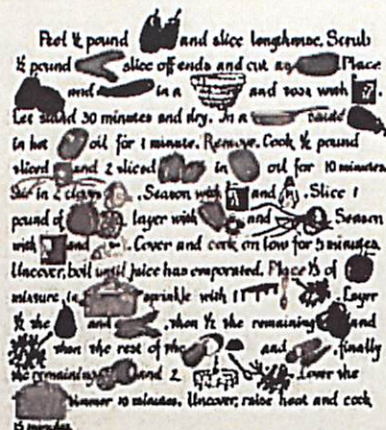 Peel ½ pound and slice lengthwise. Scrub
½ pound slice off ends and cut as Place
and in a and toss with
Let stand 30 minutes and dry. In a sauté
in hot oil for 1 minute. Remove. Cook ½ pound
sliced and 2 sliced in oil for 10 minutes
Stir in 2 cloves . Season with and . Slice 1
pound of layer with and Season
with and . Cover and cook on low for 5 minutes
Uncover, boil until juice has evaporated. Place ⅓ of
mixture in sprinkle with 1 T Layer
½ the and , then ½ the remaining and
then the rest of the and , finally
the remaining and 2 Cover the
simmer 10 minutes. Uncover, raise heat and cook
15 minutes.